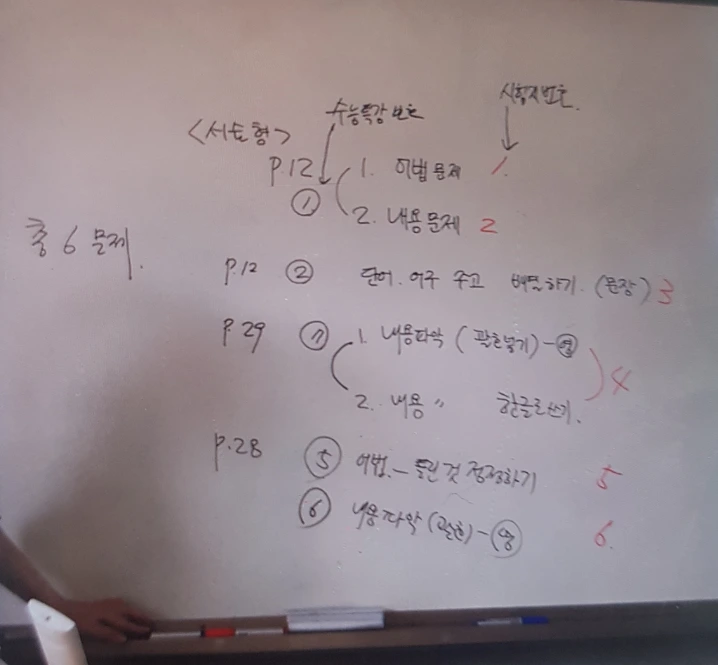 시험지 번호
수능특강 번호
<서논형>
p.12 1. 어법 문제 1.
①
2. 내용 문제 2
총 6 문제.
p.12 ② 단어. 어구 주고 배열하기. (문장) 3
p.29 1. 내용파악 (괄호넣기) - 영
2. 내용 〃 한글로쓰기. 4
p.28 ⑤ 어법. - 틀린 것 정정하기 5
⑥ 내용파악 (괄호) - 영 6.